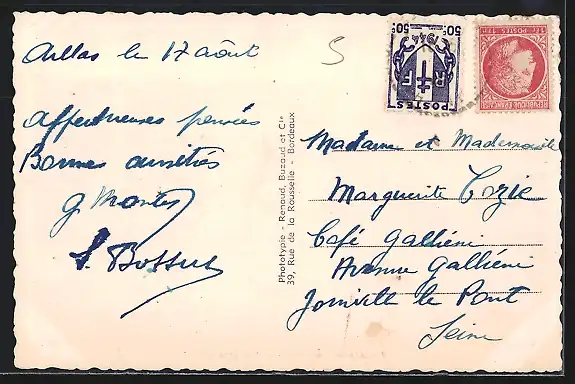 le 17 août
5
affectueuses pensées
Bonnes amitiés
G Montes
S. Bossus
Phototypie - Renaud, Buzaud et Cie
39, Rue de la Rousselle - Bordeaux
50c 50c
1944
RF
POSTES
1Fr POSTES 1Fr
REPUBLIQUE FRANÇAISE
Madame et Mademoiselle
Marguerite Cozie
Café Galliéni
Avenue Galliéni
Joinville le Pont
Seine